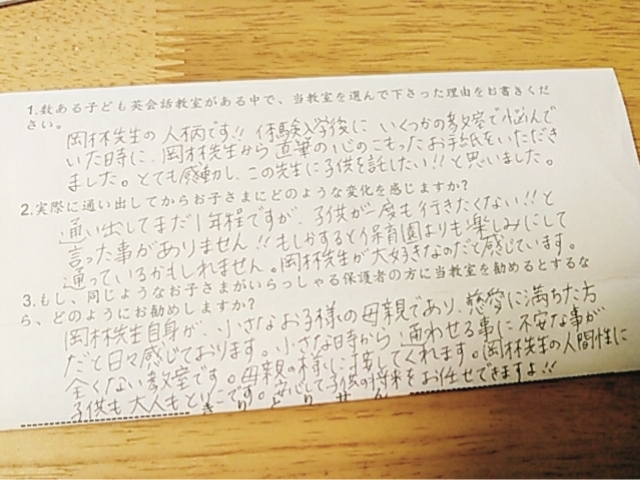 1.数ある子ども英会話教室がある中で、当教室を選んで下さった理由をお書きくだ
さい。
岡林先生の人柄です!! 体験入学後に いくつかの教室で悩んで
いた時に、岡林先生から直筆の心のこもったお手紙をいただき
ました。とても感動し、この先生に子供を託したい!!と思いました。
2.実際に通い出してからお子さまにどのような変化を感じますか?
通い出してまだ1年程ですが、子供が一度も行きたくない!!と
言った事がありません!! もしかすると保育園よりも楽しみにして
通っているかもしれません。岡林先生が大好きなのだと感じています。
3.もし、同じようなお子さまがいらっしゃる保護者の方に当教室を勧めるとするな
ら、どのようにお勧めしますか?
岡林先生自身が、小さなお子様の母親であり、慈愛に満ちた方
だと日々感じております。小さな時から 通わせる事に不安な事が
全くない教室です。母親の様に接してくれます。岡林先生の人間性に
子供も大人もとりこです。安心して子供の将来をお任せできますよ!!
きりとりせん